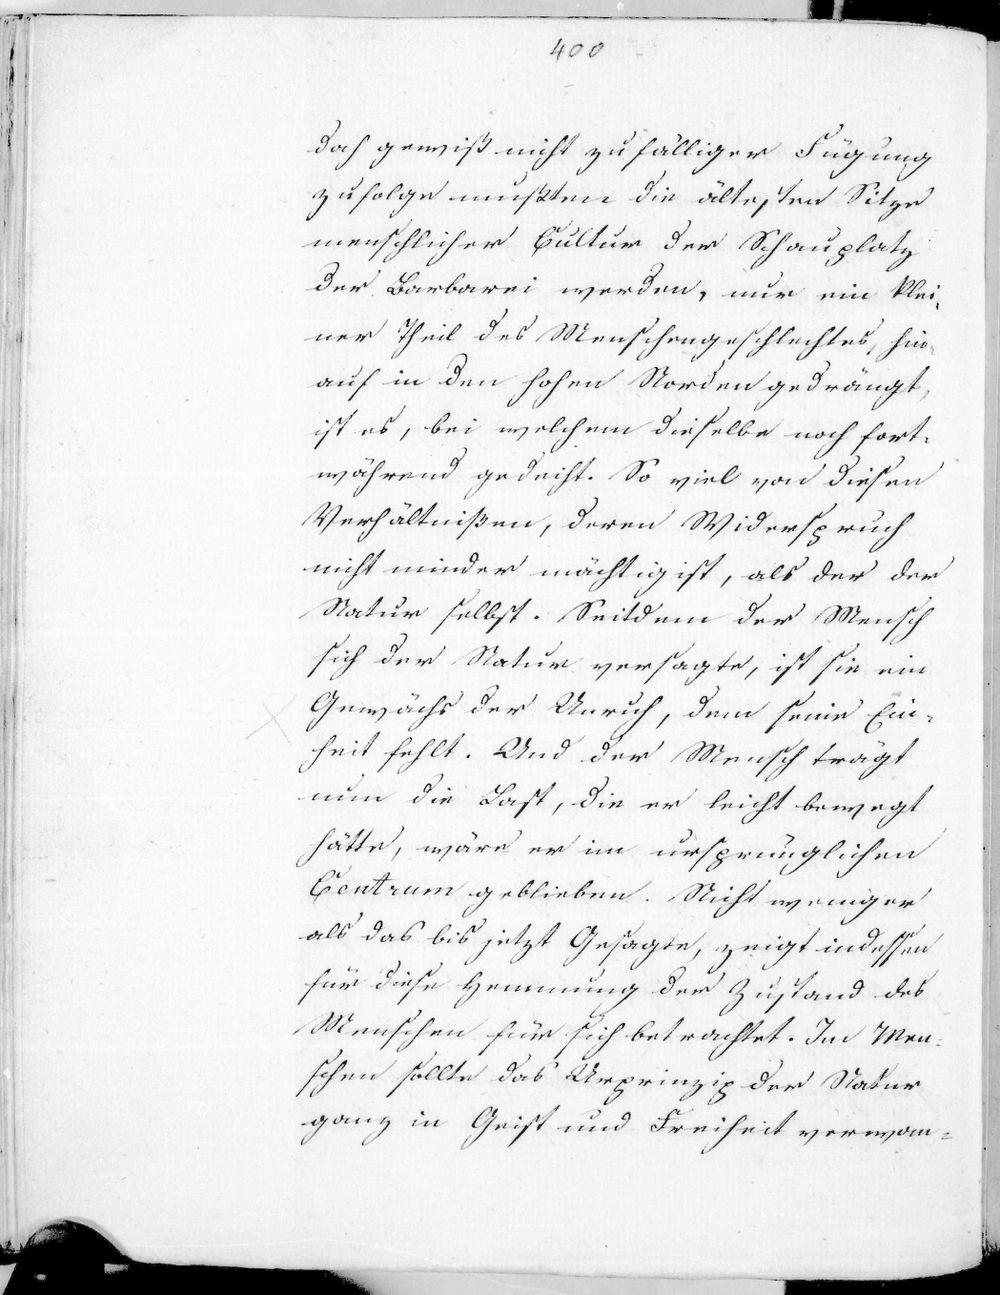 400
doch gewiß nicht zufälliger Fügung
zufolge mußten die ältesten Sitze
menschlicher Cultur der Schauplatz
der Barbarei werden, nur ein klei-
ner Theil des Menschengeschlechtes, hin-
auf in den hohen Norden gedrängt,
ist es, bei welchem dieselbe noch fort-
während gedeiht. So viel von diesen
Verhältnißen, deren Widerspruch
nicht minder mächtig ist, als der der
Natur selbst. Seitdem der Mensch
sich der Natur versagte, ist sie ein
Gewächs der Unruh, dem seine Ein-
heit fehlt. Und der Mensch trägt
nun die Last, die er leicht bewegt
hätte, wäre er im ursprünglichen
Centrum geblieben. Nicht weniger
als das bis jetzt Gesagte, zeigt indessen
für diese Hemmung der Zustand des
Menschen für sich betrachtet. Im Men-
schen sollte das Urprinzip der Natur
ganz in Geist und Freiheit verwan-